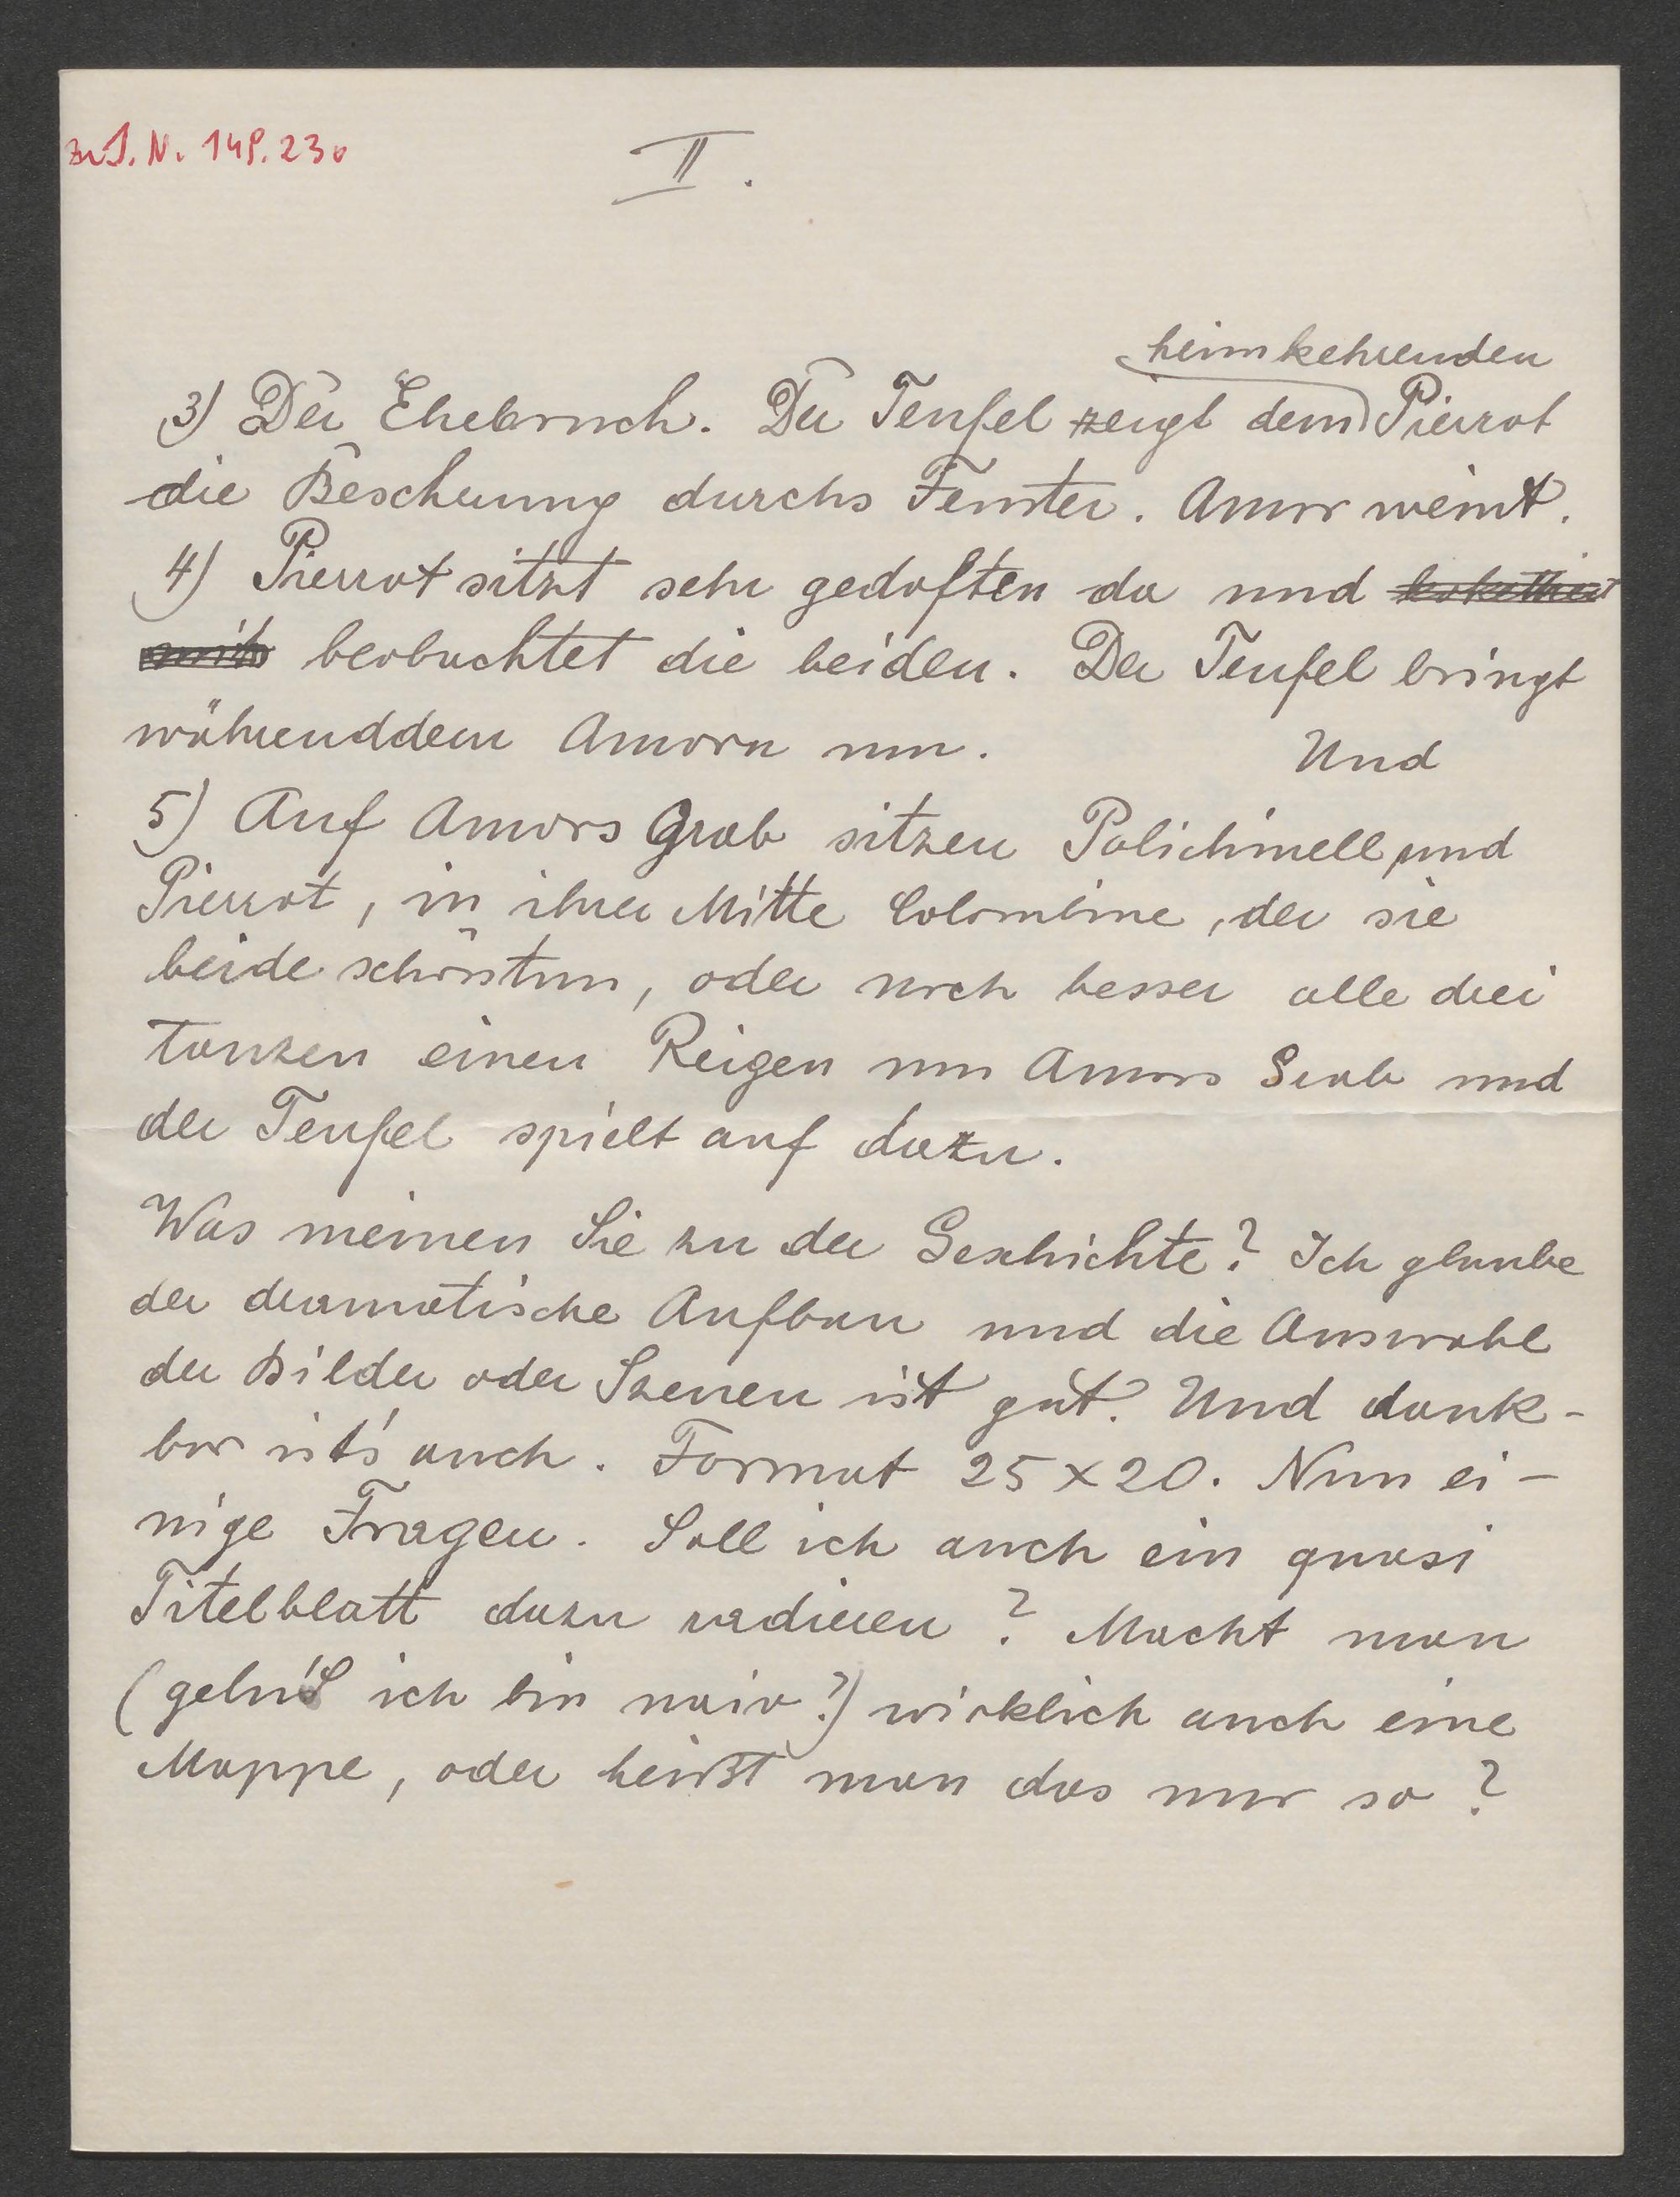 zu I. N. 149.230
II.
heimkehrenden
3) Der Ehebruch. Der Teufel zeigt dem Pierrot
die Bescherung durchs Fenster. Amor weint.
4) Pierrot sitzt sehr gedaften da und kokettiert
mit beobachtet die beiden. Der Teufel bringt
währenddem Amorn um. Und
5) Auf Amors Grab sitzen Polichinell und
Pierrot, in ihrer Mitte Colombine, der sie
beide schönstun, oder noch besser alle drei
tanzen einen Reigen um Amors Grab und
der Teufel spielt auf dazu.
Was meinen Sie zu der Geschichte? Ich glaube
der dramatische Aufbau und die Auswahl
der Bilder oder Szenen ist gut. Und dank-
bar ist's auch. Format 25 x 20. Nun ei-
nige Fragen. Soll ich auch ein quasi
Titelblatt dazu radieren? Macht man
(geln'S ich bin naiv?) wirklich auch eine
Mappe, oder heißt man das nur so?